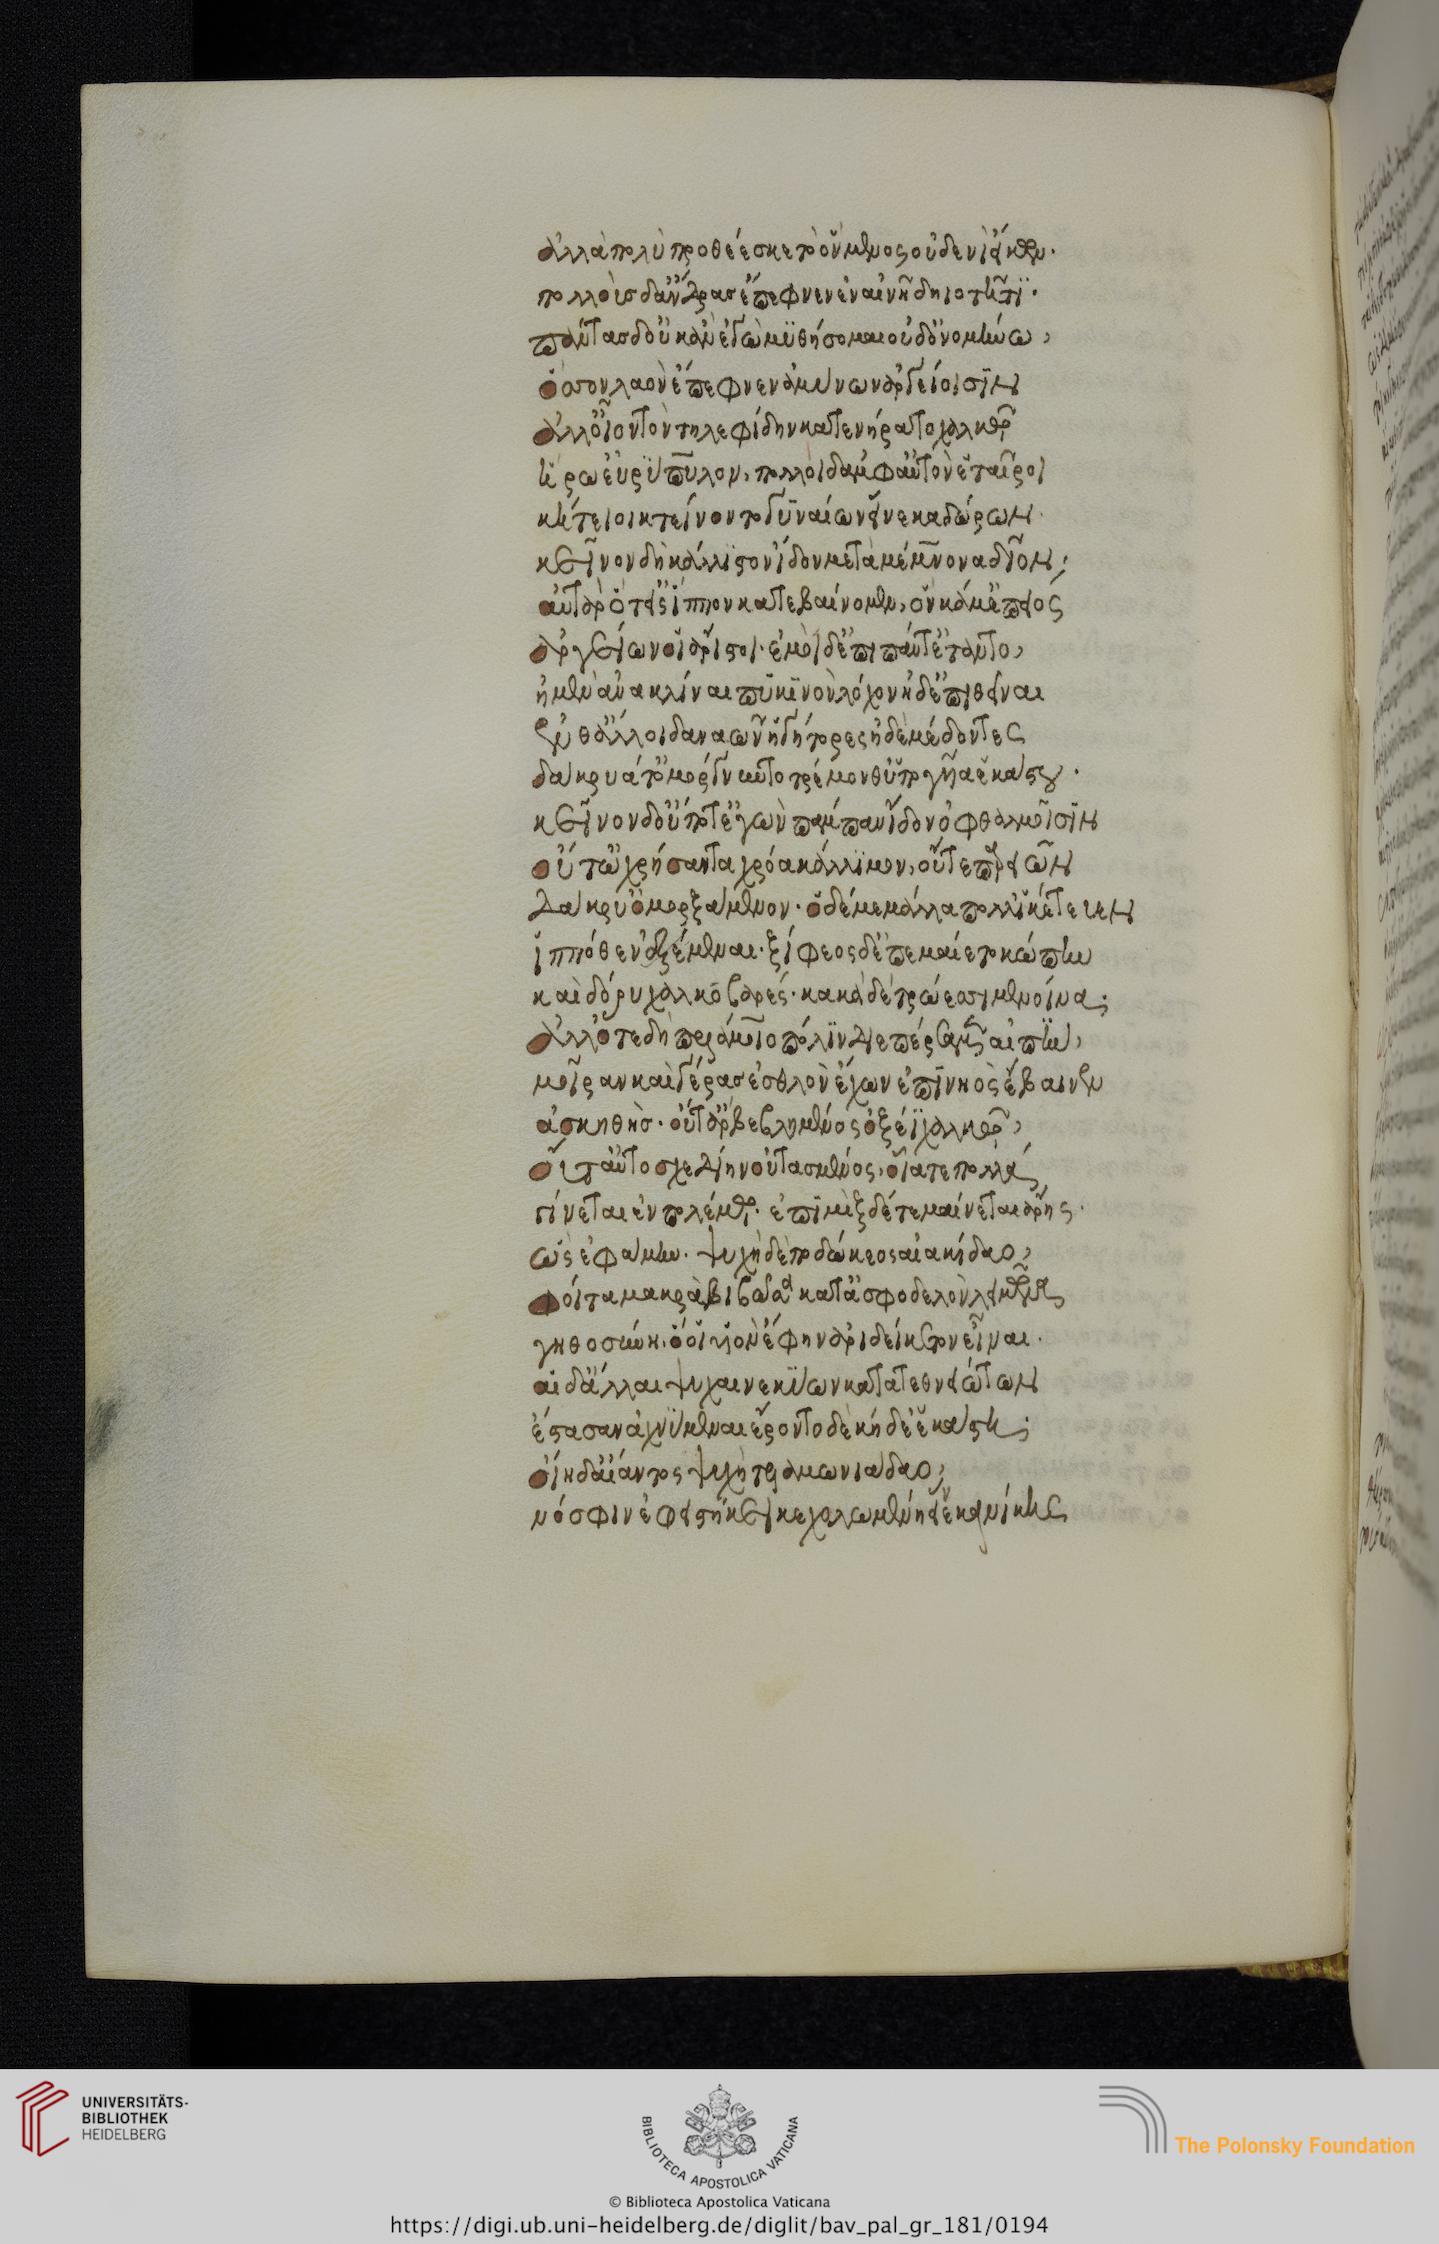 ἀλλὰ πολὺ προθέεσκε τὸ ὃν μένος οὐδενὶ εἴκων·
πολλοὺς δ' ἄνδρας ἔπεφνεν ἐν αἰνῇ δηιοτῆτι·
πάντας δ' οὐκ ἂν ἐγὼ μυθήσομαι οὐδ' ὀνομήνω,
ὅσσον λαὸν ἔπεφνεν ἀμύνων ἀργείοισιν
ἀλλ' οἷον τὸν τηλεφίδην κατενήρατο χαλκῷ
ἥρω' εὐρύπυλον, πολλοὶ δ' ἀμφ' αὐτὸν ἑταῖροι
κήτειοι κτείνοντο γυναίων εἵνεκα δώρων·
κεῖνον δὴ κάλλιστον ἴδον μετὰ μέμνονα δῖον·
αὐτὰρ ὅτ' εἰς ἵππον κατεβαίνομεν, ὃν κάμ' ἐπειὸς
ἀργείων οἱ ἄριστοι· ἐμοὶ δ' ἐπὶ πάντ' ἐτέταλτο,
ἠμὲν ἀνακλῖναι πυκινὸν λόχον ἠδ' ἐπιθεῖναι
ἔνθ' ἄλλοι δαναῶν ἡγήτορες ἠδὲ μέδοντες
δάκρυά τ' ὀμόργνυντο τρέμον θ' ὑπὸ γυῖα ἑκάστου·
κεῖνον δ' οὔποτ' ἐγὼν πάμπαν ἴδον ὀφθαλμοῖσιν
οὔτ' ὠχρήσαντα χρόα κάλλιμον, οὔτε παρειῶν
δάκρυ' ὀμορξάμενον· ὁ δέ με μάλα πόλλ' ἱκέτευεν
ἱππόθεν ἐξέμεναι· ξίφεος δ' ἐπεμαίετο κώπην
καὶ δόρυ χαλκοβαρές· κακὰ δὲ τρώεσσι μενοίνα·
ἀλλ' ὅτε δὴ πριάμοιο πόλιν διεπέρσαμεν αἰπὴν,
μοῖραν καὶ γέρας ἐσθλὸν ἔχων ἐπὶ νηὸς ἔβαινεν
ἀσκηθὴς· οὔτ' ἂρ βεβλημένος ὀξέϊ χαλκῷ,
οὔτ' αὐτοσχεδίην οὐτασμένος, οἷά τε πολλὰ
γίνεται ἐν πολέμῳ· ἐπιμὶξ δέ τε μαίνεται ἄρης·
ὣς ἐφάμην· ψυχὴ δὲ ποδώκεος αἰακίδαο,
φοίτα μακρὰ βιβᾶσα κατ' ἀσφοδελὸν λειμῶνα
γηθοσύνη· ὅ οἱ υἱὸν ἔφην ἀριδείκετον εἶναι·
αἱ δ' ἄλλαι ψυχαὶ νεκύων κατατεθνειώτων
ἕστασαν ἀχνύμεναι εἴροντο δὲ κήδε' ἑκάστη·
οἴη δ' αἴαντος ψυχὴ τελαμωνιάδαο,
νόσφιν ἐφειστήκει κεχολωμένη εἵνεκα νίκης
UNIVERSITÄTS-
BIBLIOTHEK
HEIDELBERG
BIBLIOTECA APOSTOLICA VATICANA
The Polonsky Foundation
© Biblioteca Apostolica Vaticana
https://digi.ub.uni-heidelberg.de/diglit/bav_pal_gr_181/0194